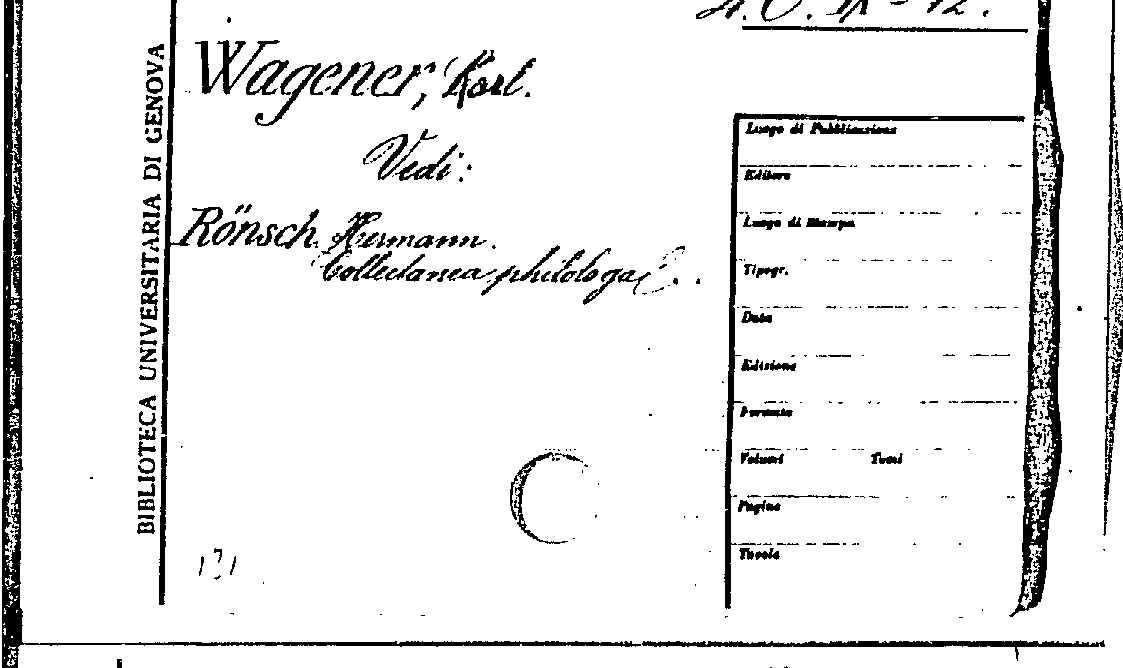 BIBLIOTECA UNIVERSITARIA DI GENOVA
Wagener, Karl.
Vedi:
Rönsch Hermann.
Collectanea philologa
Luogo di Pubblicazione
Editore
Luogo di Stampa
Tipogr.
Data
Edizione
Formato
Volumi Tomi
Pagine
Tavole